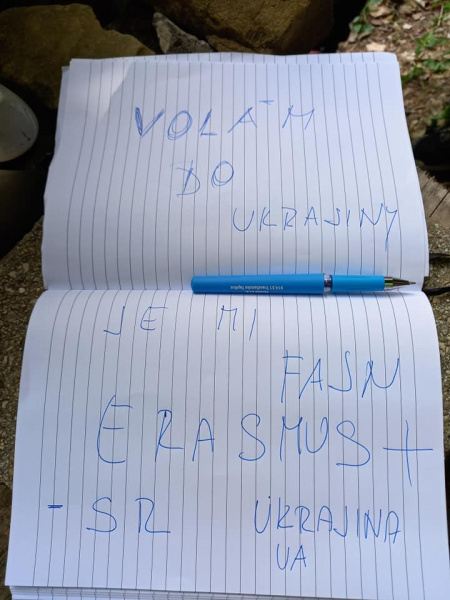 VOLÁM
DO
UKRAJINY
JE MI
FAJN
ERASMUS+
- SR UKRAJINA
UA